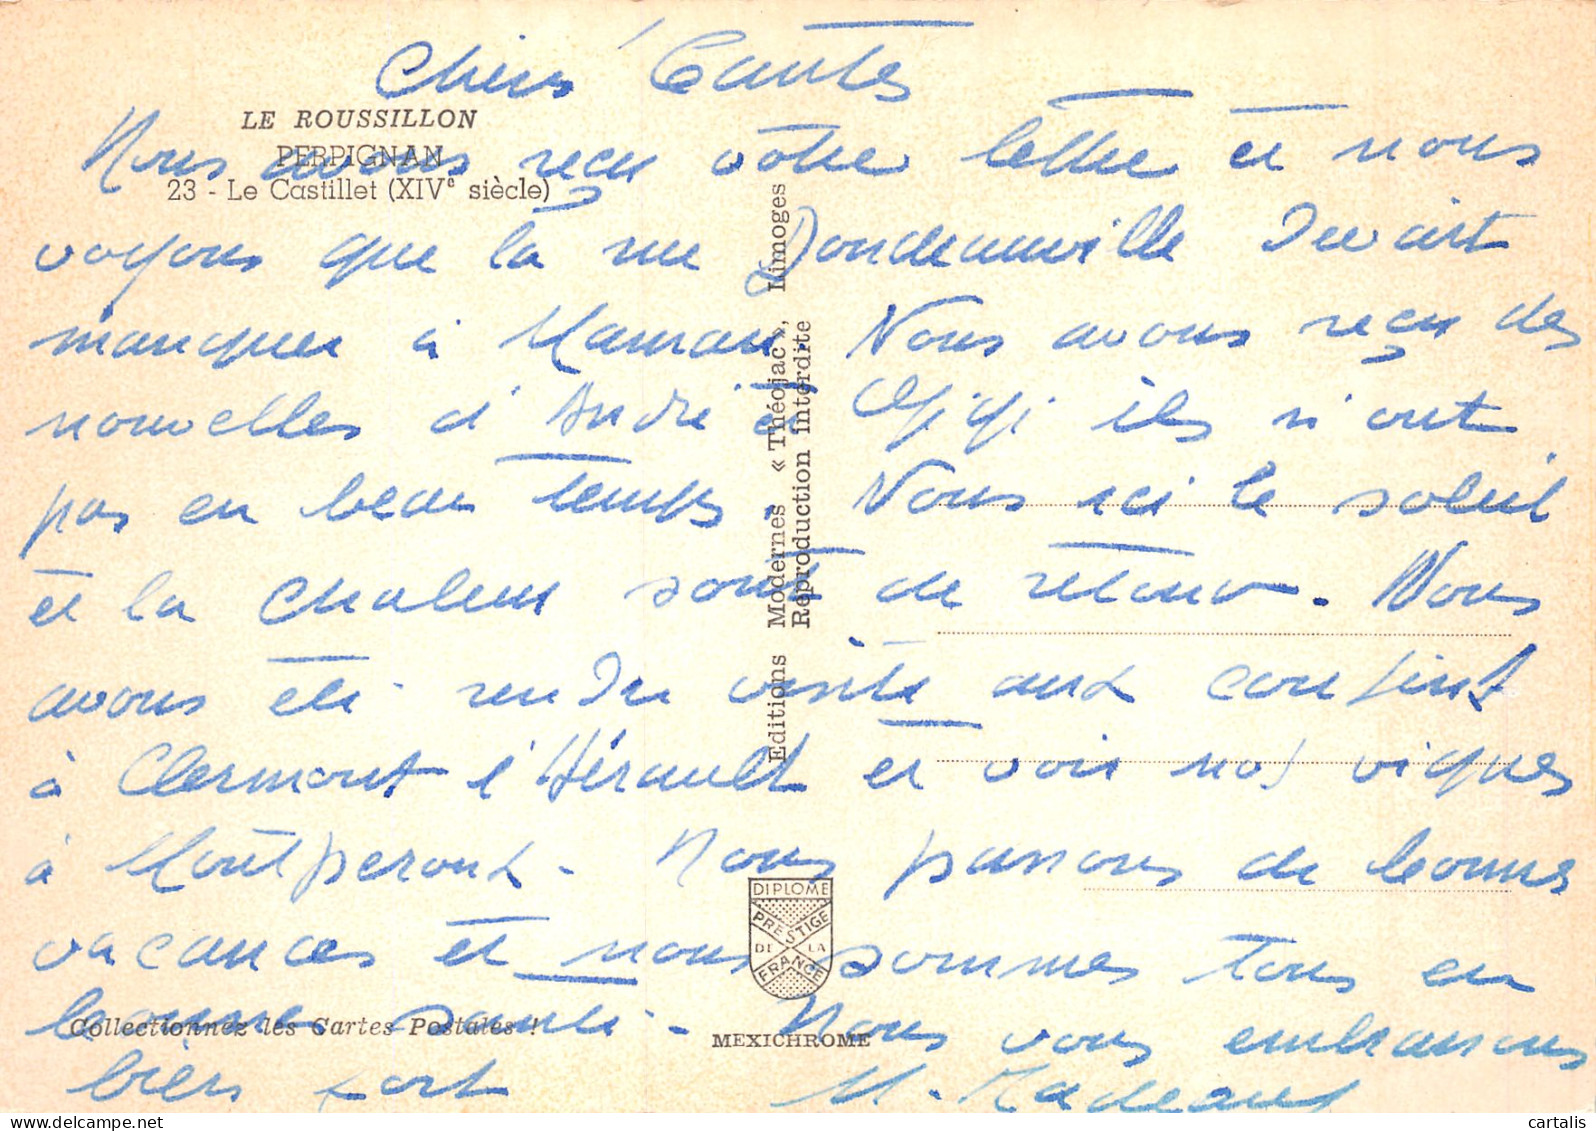 Chers Tantes
LE ROUSSILLON
PERPIGNAN
23 - Le Castillet (XIVe siècle)
Nous avons reçu votre lettre et nous
voyons que la rue Doudeauville
manquer à Maman. Nous avons reçu des
nouvelles d'André et Gigi ils n'ont
pas eu beau temps. Nous ici le soleil
et la chaleur sont de retour. Nous
avons été rendre visite aux cousins
à Clermont l'Hérault et voir nos vignes
à
Nous passons de bonnes
vacances et nous sommes tous en
bonne santé - Nous vous embrassons
bien fort
M.
Editions Modernes « Théojac », Limoges
Reproduction interdite
DIPLOME
PRESTIGE
DE LA
FRANCE
Collectionnez les Cartes Postales !
MEXICHROME
cartalis
www.delcampe.net